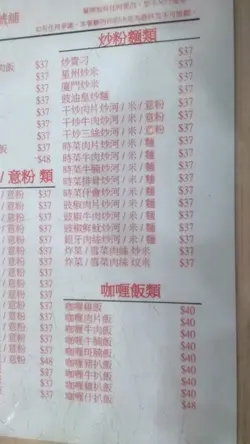 號舖
炒粉麵類
肉飯 $37
$37
$37
$37
$37
$37
$48
炒貴刁 $37
星州炒米 $37
廈門炒米 $37
豉油皇炒麵 $37
干炒肉片炒河 / 米 / 意粉 $37
干炒牛肉炒河 / 米 / 意粉 $37
干炒三絲炒河 / 米 / 意粉 $37
時菜肉片炒河 / 米 / 麵 $37
時菜牛肉炒河 / 米 / 麵 $37
時菜牛腩炒河 / 米 / 麵 $37
時菜排骨炒河 / 米 / 麵 $37
時菜什會炒河 / 米 / 麵 $37
豉椒肉片炒河 / 米 / 麵 $37
豉椒牛肉炒河 / 米 / 麵 $37
豉椒鮮魷炒河 / 米 / 麵 $37
銀牙肉絲炒河 / 米 / 麵 $37
炸菜 / 雪菜肉絲 炒米 $37
炸菜 / 雪菜肉絲 炆米 $37
/ 意粉 類
/ 意粉 $37
/ 意粉 $37
/ 意粉 $37
/ 意粉 $37
/ 意粉 $37
/ 意粉 $37
/ 意粉 $37
/ 意粉 $48
咖喱飯類
咖喱雞飯 $40
咖喱肉片飯 $40
咖喱牛肉飯 $40
咖喱牛腩飯 $40
咖喱斑腩飯 $40
咖喱豬扒飯 $40
咖喱雞扒飯 $40
咖喱什扒飯 $48